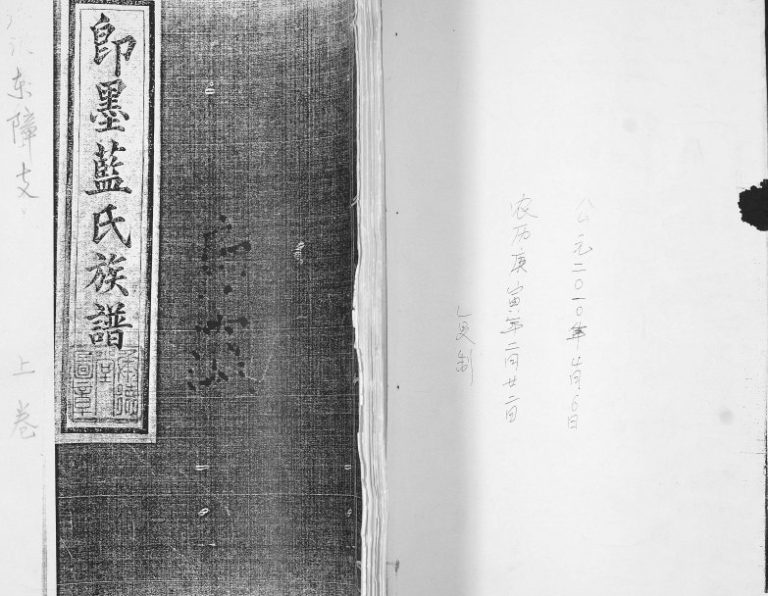 公元二〇一〇年4月6日
农历庚寅年二月廿二日
复制
即墨藍氏族譜
东障支
上卷